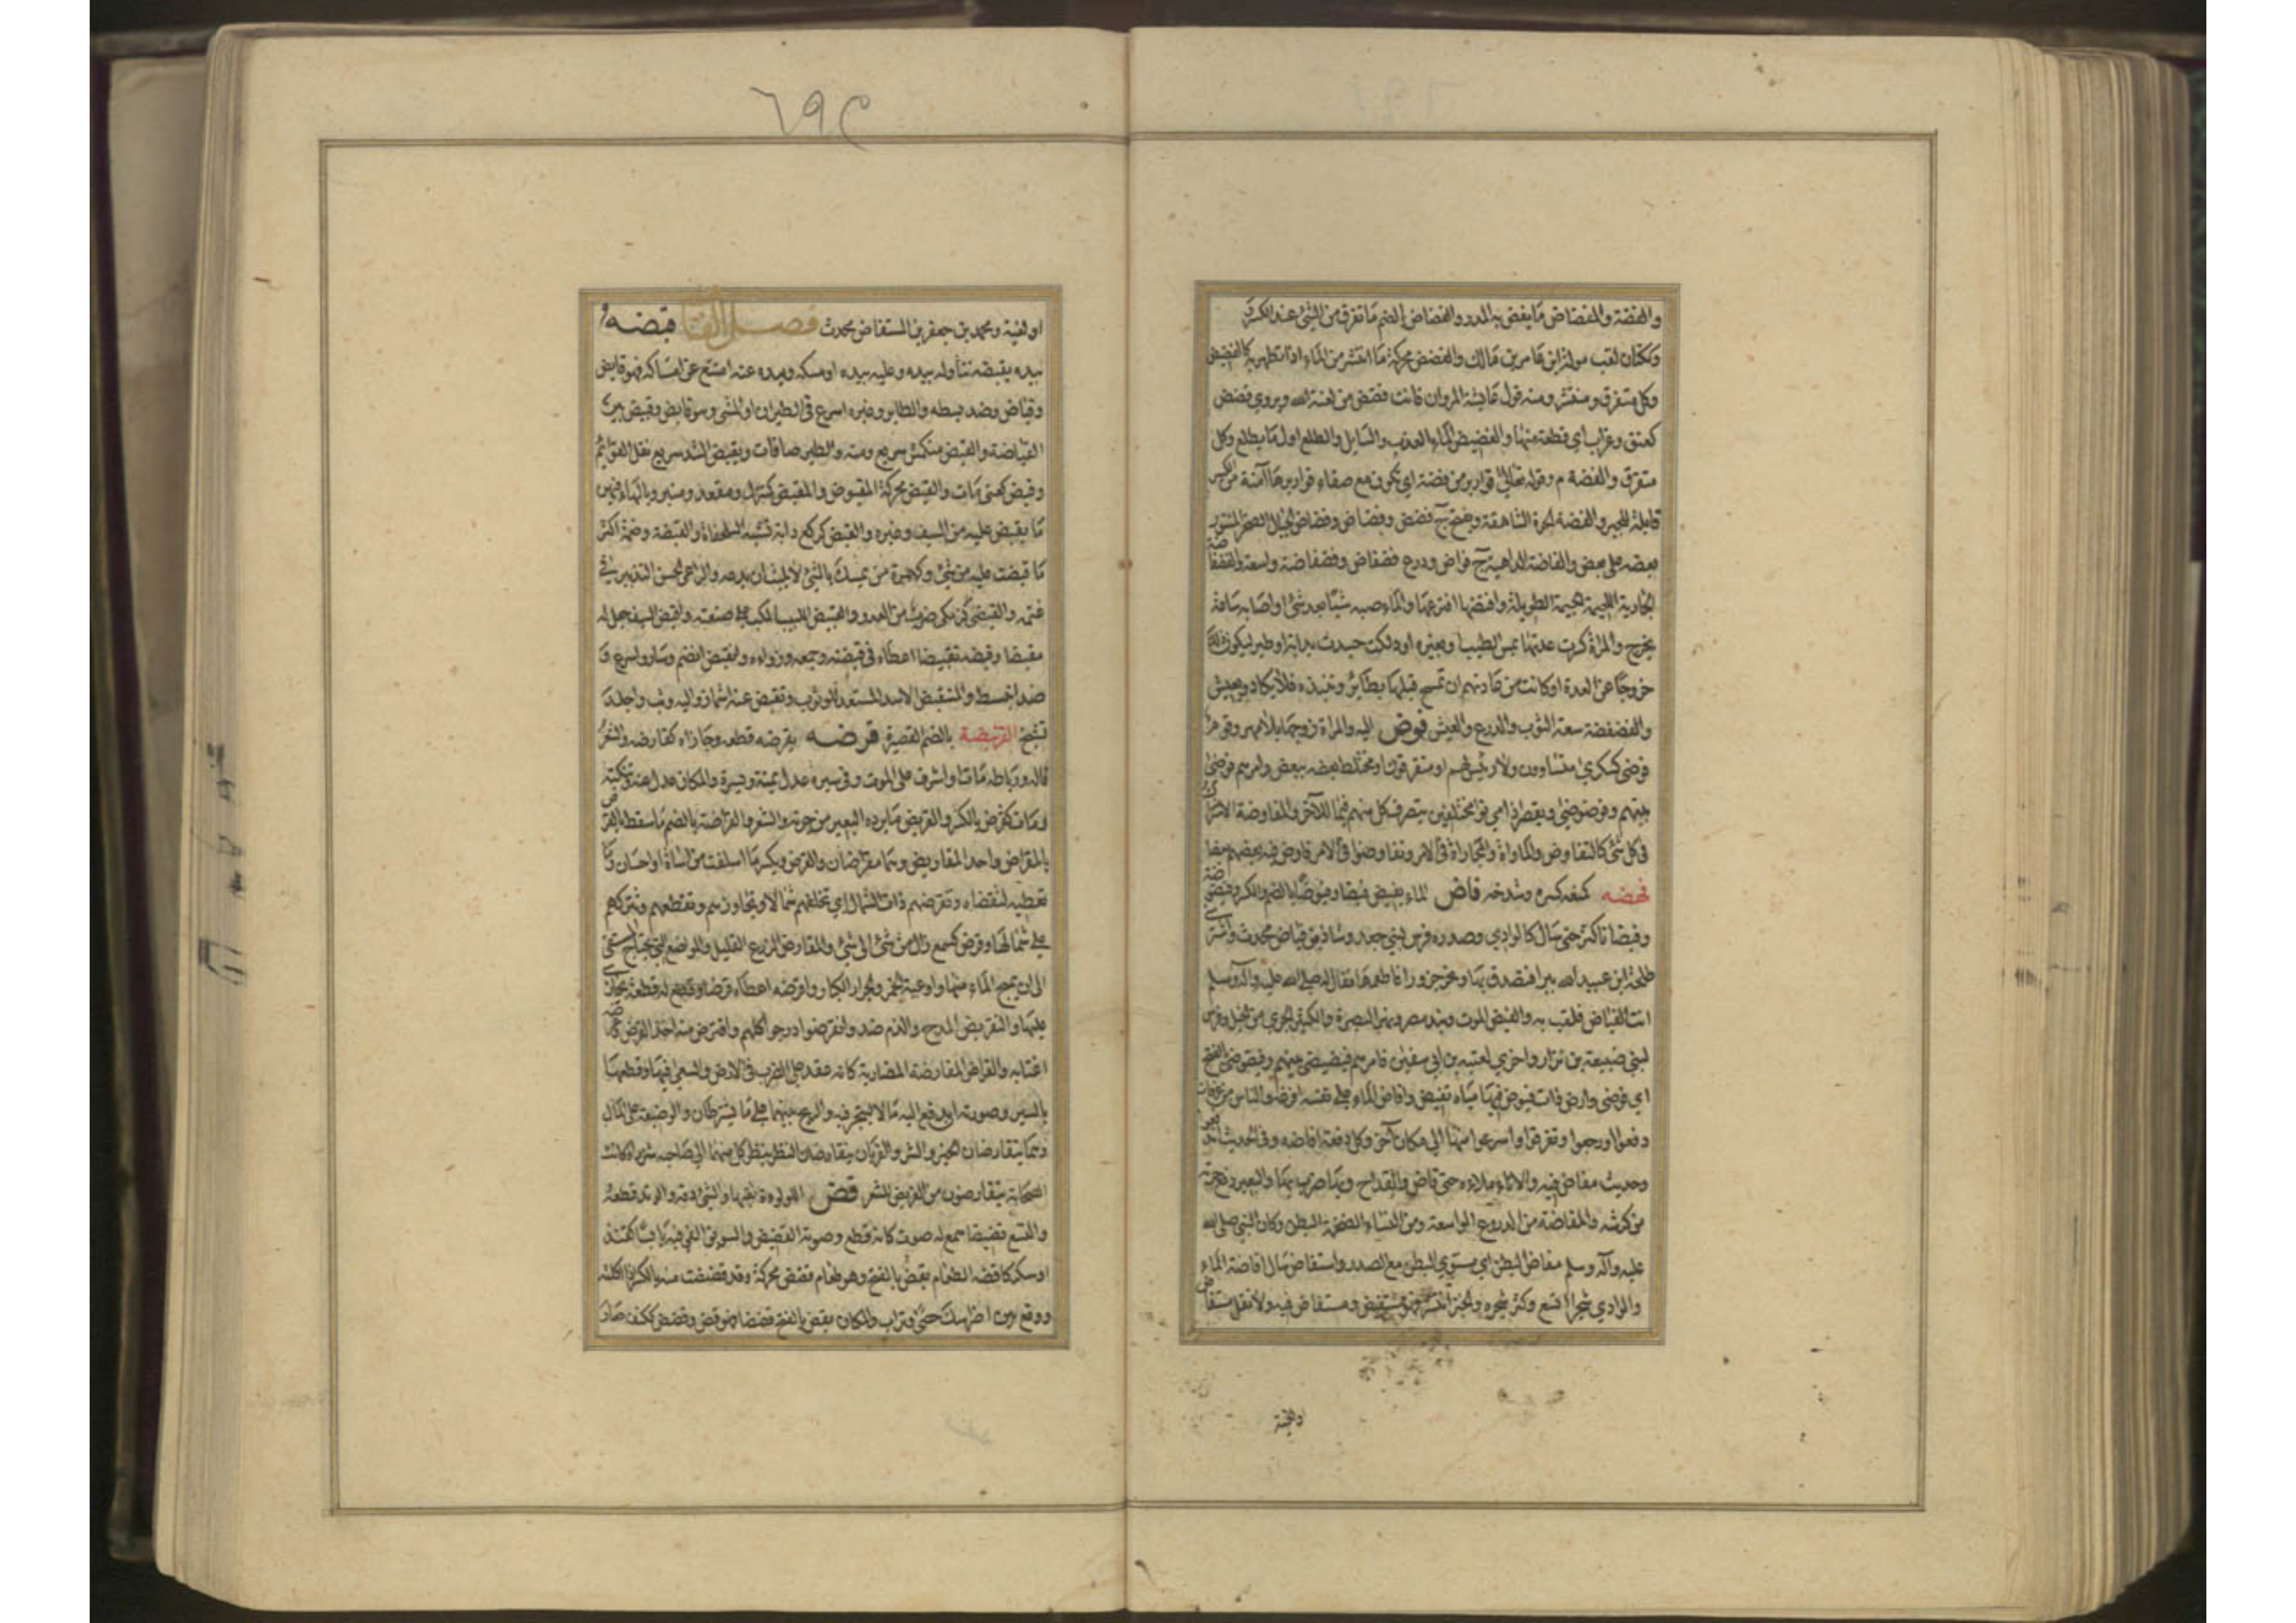 والفضة والمفضاض مَا يفض به المدر والفضاض بالضم مَا تفرق من الشئ عند الكسر
وككتان لقب موالة ابن عامر بن مَالك والفضض محركة مَا انتشر من الماء اذا تطهر به كالفضيض
وكل متفرق ومنتشر ومنه قول عَايشة لمروان فانت فضض من لعنة الله ويروي فضض
كعنق وغراب اي قطعة منها والفضيض الماء العذب والسَايل والطلع اول مَا يطلع وكل
متفرق والفضة م وقوله تعَالى قوارير من فضة اي تكون مع صفاء قواريرهَا آمنة من الكسر
قابلة للجبر والفضة الحرة الشاهقة ويفتح ج فضض وفضاض وفضاض الجبال الصخر المنثور
بعضه على بعض والفاضة الداهية ج فواض ودرع فضفاض وفضفاضة واسعة والفضفاضة
الجَارية اللحيمة الجسيمة الطويلة وافتضها افترعهَا والماء صبه شيئا بعد شئ او اصَابه سَاعة
يخرج والمراة كسرت عدتهَا بمس الطيب او بغيره او دلكت جسدها بدابة او طير ليكون ذلك
خروجًا عن العدة او كانت من عَادتهم ان تمسح قبلهَا بطَاير وتنبذه فلا يكاد يعيش
والفضفضة سعة الثوب والدرع والعيش فوض اليه والمراة زوجهَا بلا مهر وقوم
فوضى كسكرى متساوون ولا رئيس لهم او متفرقون او مختلط بعضه ببعض وامرهم فوضى
بينهم وفوضوضى ويقصر اذا اي مختلفين يتصرف كل منهم فيما للآخر والمفاوضة الاشتراك
في كل شئ كالتفاوض والمساواة والمجاراة في الامر وتفاوضوا في الامر فاوض فيه بعضهم بعضا
فهضه كمنعه كسره وشدخه فاض الماء يفيض فيضا وفيوضًا بالضم والكسر وفيضوضة
وفيضانا كثر حتى سَال كالوادي وصدره فرس لبني جعد وشاذ بن فياض محدث واشترى
طلحة ابن عبيد الله بيرا فتصدق بهَا ونحر جزورا فاطعمهَا فقال له صلى الله عليه وآله وسلم
انت الفياض فلقب به والفيض الموت ونيل مصر ونهر البصرة والكثير الجري من الخيل وفرس
لبني ضبيعة بن نزار واخرى لعتبة بن ابي سفيان وامرهم فيضيضى بينهم وفيضوضى بالفتح
اي فوضى وارض ذات فيوض فيهَا ميَاه تفيض وافاض الماء على نفسه افرغه والناس من عرفات
دفعوا او رجعوا وتفرقوا واسرعوا منها الى مكان آخر وكل دفعة افاضة وفي الحديث اندفعوا
وحديث مفاض فيه والاناء ملاءه حتى فاض والقداح وبهَا ضرب بهَا والبعير دفع جرته
من كرشه والمفاضة من الدروع الواسعة ومن النساء الضخمة البطن وكان النبي صلى الله
عليه وآله وسلم مفاض البطن اي مستوي البطن مع الصدر واستفاض سَال افاضة الماء
والوادي شجرا اتسع وكثر شجره والخبر انتشر فهو مستفيض ومستفاض فيه ولا تقل مستفاض
٦٩٢
او لغية ومحمد بن جعفر بن المستفاض محدث فصل القَاف قبضه
بيده يقبضه تناوله بيده وعليه بيده امسكه ويده عنه امتنع عن امسَاكه فهو قابض
وقباض وضد بسطه والطاير وغيره اسرع في الطيران او المشي وهو قابض وقبيض بين
القباضة والقبض منكمش سريع ومنه والطير صافات ويقبضن الشد سريع نقل القوايم
وقبض كعنى مَات والقبض محركة المقبوض والمقبض كمنزل ومقعد ومنبر وبالهاء فيهن
مَا يقبض عليه من السيف وغيره والقبض كركع دابة تشبه السلحفاة والقبضة وضمه اكثر
مَا قبضت عليه من شئ وكهمزة من يمسك بالشئ لا يلبث ان يدعه والراعي الحسن التدبير في
غنمه والقبضى كزمكى ضرب من العدو والقبيض اللبيب المكب على صنعته واقبض السيف جعل له
مقبضا وقبضه تقبيضا اعطاه في قبضته وجمعه وزواه وانقبض انضم وسار واسرع و
ضد انبسط والمتقبض الاسد المستعد للوثوب وتقبض عنه اشماز واليه وثب والجلد
تشنج القرنبضة بالضم القصيرة قرضه يقرضه قطعه وجَازاه كقارضه والشعر
قاله ورباطه مَات او اشرف على الموت وفي سيره عدل يمنة ويسرة والمكان عدل عنه وتنكبه
ومَات كقرض بالكسر والقريض مَا يرده البعير من جرته والشعر والقراضة بالضم مَا سقط بالقرض
والمقراض واحد المقاريض وهمَا مقراضان والقرض ويكسر مَا اسلفت من اساءة او احسان ومَا
تعطيه لتقضاه وتقرضهم ذات الشمال اي تخلفهم شمَالا او تجاوزهم وتقطعهم وتتركهم
على شمَالهَا وقرض كسمع زال من شئ الى شئ والمقارض الزرع القليل والمواضع التي يحتاج المستقي
الى ان يميح الماء منها واوعية الخمر والجرار الكبار واقرضه اعطاه قرضا وقطع له قطعة يجازي
عليهَا والتقريض المدح والذم ضد وانقرضوا درجوا كلهم واقترض منه اخذ القرض وعرضه
اغتابه والقراض والمقارضة المضاربة كانه عقد على الضرب في الارض والسعي فيهَا وقطعهَا
بالسير وصورته ان يدفع اليه مَالا ليتجر فيه والربح بينهما على مَا يشترطان والوضيعة على المال
وهمَا يتقارضان الخير والشر والقرنان يتقارضان النظر ينظر كل منهما الى صَاحبه شزرا وكانت
الصحَابة يتقارضون من القريض الشعر قض اللولوة ثقبها والشئ دقه والوتد قطعه
والنسع قضيضا سمع له صوت كانه قطع وصوته القضيض والسويق القي فيه يابسا كقند
او سكر كاقضه والطعام يقض بالفتح وهو طعام قضض محركة وقد قضضت منه بالكسر اذا اكلته
ووقع بين اضراسك حصى وتراب والمكان يقض بالفتح قضضا فهو قض وقضض ككتف صَار
والخبز